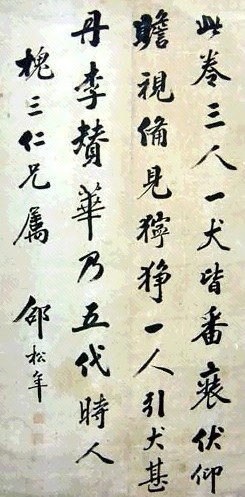 此卷三人一犬皆番裘伏仰
瞻視備見獰猙一人引犬甚
丹李贊華乃五代時人
槐三仁兄屬 邵松年